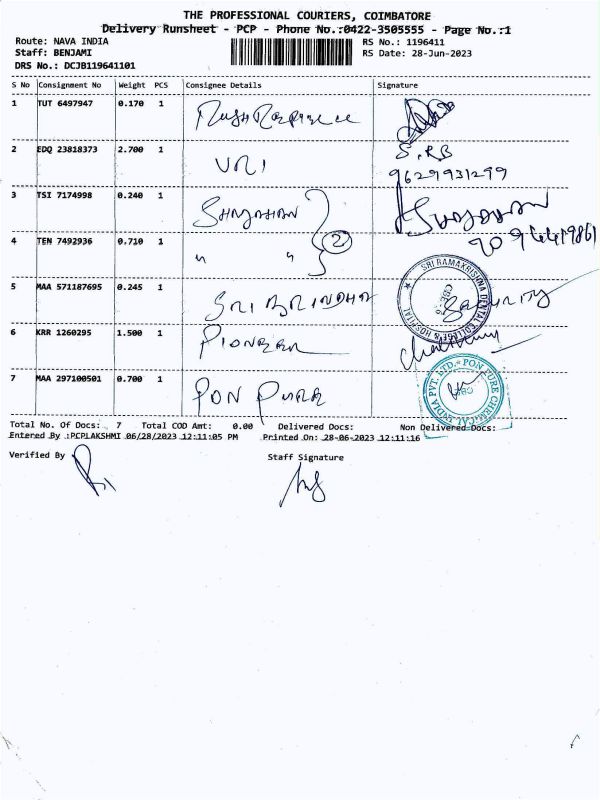 THE PROFESSIONAL COURIERS, COIMBATORE
Delivery Runsheet - PCP - Phone No.:0422-3505555 - Page No.:1
Route: NAVA INDIA RS No.: 1196411
Staff: BENJAMI RS Date: 28-Jun-2023
DRS No.: DCJB119641101
S No Consignment No Weight PCS Consignee Details Signature
1 TUT 6497947 0.170 1
2 EDQ 23818373 2.700 1 S.RB
9629931299
3 TSI 7174998 0.240 1
4 TEN 7492936 0.710 1 " " 2
5 MAA 571187695 0.245 1 SRI BRINDHA SRI RAMAKRISHNA DENTAL COLLEGE & HOSPITAL
6 KRR 1260295 1.500 1 PIONEER
7 MAA 297100501 0.700 1 PON PURE PON PURE CHEMICAL INDIA PVT. LTD.
Total No. Of Docs: 7 Total COD Amt: 0.00 Delivered Docs: Non Delivered Docs:
Entered By :PCPLAKSHMI 06/28/2023 12:11:05 PM Printed On: 28-06-2023 12:11:16
Verified By Staff Signature